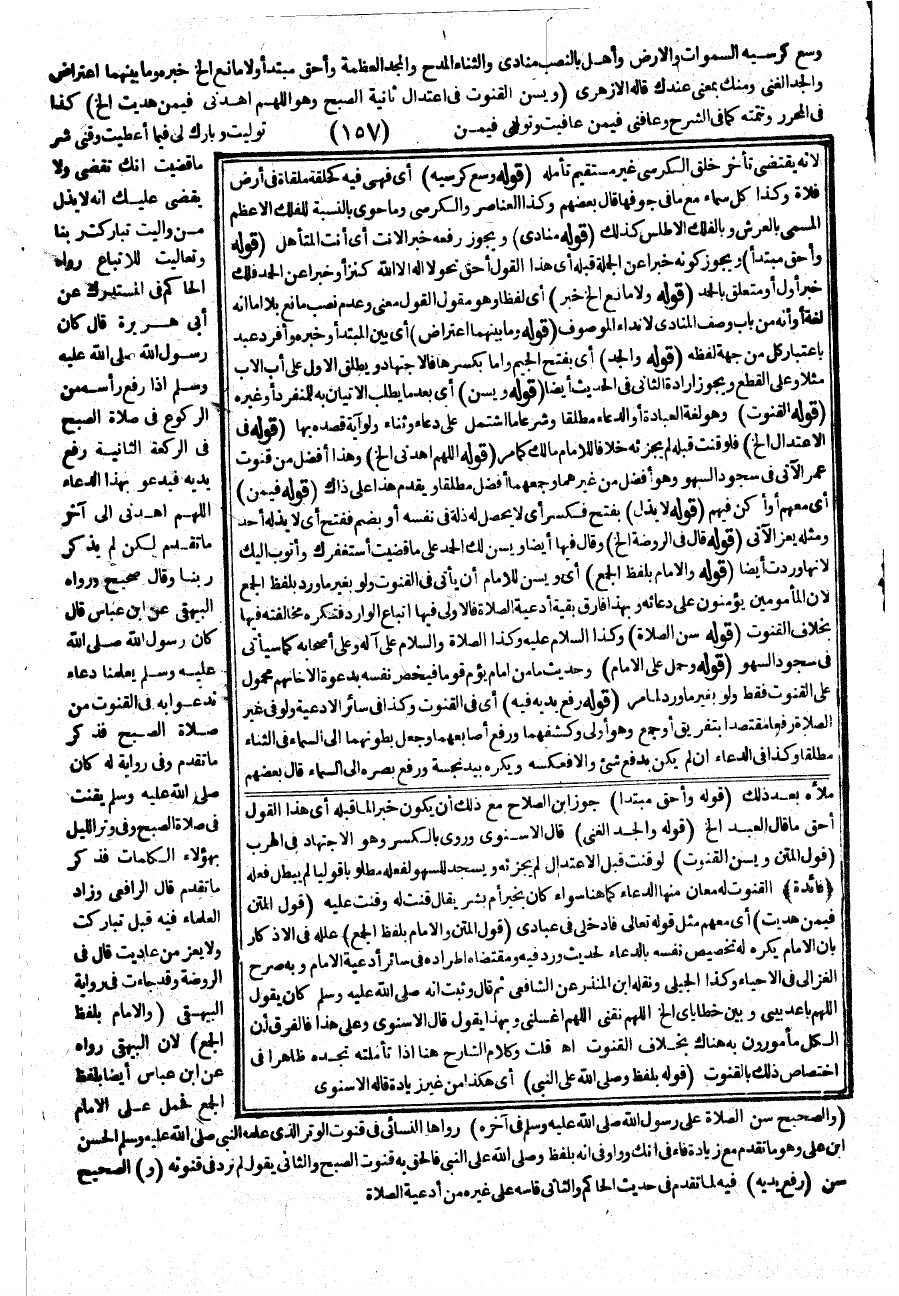 وسع كرسيه السموات والارض وأهل بالنصب منادى والثناء المدح والمجد العظمة وأحق مبتدأ ولا مانع الخ خبره وما بينهما اعتراض
والجد الغنى ومنك بمعنى عندك قاله الازهرى (ويسن القنوت فى اعتدال ثانية الصبح وهو اللهم اهدنى فيمن هديت الخ) كذا
فى المحرر وتتمته كما فى الشرح وعافنى فيمن عافيت وتولنى فيمن
(١٥٧)
توليت وبارك لى فيما أعطيت وقنى شر
ماقضيت انك تقضى ولا
يقضى عليك انه لايذل
من واليت تباركت ربنا
وتعاليت للاتباع رواه
الحاكم فى المستدرك عن
أبى هريرة قال كان
رسول الله صلى الله عليه
وسلم اذا رفع رأسه من
الركوع فى صلاة الصبح
فى الركعة الثانية رفع
يديه فيدعو بهذا الدعاء
اللهم اهدنى الى آخر
ماتقدم لكن لم يذكر
ربنا وقال صحيح ورواه
البيهقى عن ابن عباس قال
كان رسول الله صلى الله
عليه وسلم يعلمنا دعاء
ندعو به فى القنوت من
صلاة الصبح فذكر
ماتقدم وفى رواية له كان
صلى الله عليه وسلم يقنت
فى صلاة الصبح وفى وتر الليل
بهؤلاء الكلمات فذكر
ماتقدم قال الرافعى وزاد
العلماء فيه قبل تباركت
ولا يعز من عاديت قال فى
الروضة وقد جاءت فى رواية
البيهقى (والامام بلفظ
الجمع) لان البيهقى رواه
عن ابن عباس أيضا بلفظ
الجمع فحمل على الامام
(والصحيح سن الصلاة على رسول الله صلى الله عليه وسلم فى آخره) رواها النسائى فى قنوت الوتر الذى علمه النبى صلى الله عليه وسلم الحسن
ابن على وهو ماتقدم مع زيادة فاء فى انك وواو فى انه بلفظ وصلى الله على النبى فالحق به قنوت الصبح والثانى يقول لم ترد فى قنوته (و) الصحيح
سن (رفع يديه) فيه لما تقدم فى حديث الحاكم والثانى قاسه على غيره من أدعية الصلاة
لانه يقتضى تأخر خلق الكرسى غير مستقيم تأمله (قوله وسع كرسيه) أى فهى فيه كحلقة ملقاة فى أرض
فلاة وكذا كل سماء مع مافى جوفها قال بعضهم وكذا العناصر والكرسى وماحوى بالنسبة للفلك الاعظم
المسمى بالعرش وبالفلك الاطلس كذلك (قوله منادى) ويجوز رفعه خبر الانت أى أنت المتأهل (قوله
وأحق مبتدأ) ويجوز كونه خبرا عن الجملة قبله أى هذا القول أحق نحو لا اله الا الله كنز أو خبرا عن الحمد فلك
خبر أول أو متعلق بالحمد (قوله ولا مانع الخ خبر) أى لفظا وهو مقول القول معنى وعدم نصب مانع بلا اما انه
لغة أو أنه من باب وصف المنادى لا نداء الموصوف (قوله وما بينهما اعتراض) أى بين المبتدأ وخبره وأفرد عبد
باعتبار كل من جهة لفظه (قوله والجد) أى بفتح الجيم واما بكسرها فالاجتهاد ويطلق الاول على أب الاب
مثلا وعلى القطع ويجوز ارادة الثانى فى الحديث أيضا (قوله ويسن) أى بعد ما يطلب الاتيان به للمنفرد أو غيره
(قوله القنوت) وهو لغة العبادة أو الدعاء مطلقا وشرعا ما اشتمل على دعاء وثناء ولو آية قصده بها (قوله فى
الاعتدال الخ) فلو قنت قبله لم يجزئه خلافا للامام مالك كما مر (قوله اللهم اهدنى الخ) وهذا أفضل من قنوت
عمر الآتى فى سجود السهو وهو أفضل من غيرهما وجمعهما أفضل مطلقا ويقدم هذا على ذاك (قوله فيمن)
أى معهم أو أكن فيهم (قوله لا يذل) بفتح فكسر أى لا يحصل له ذلة فى نفسه أو بضم ففتح أى لا يذله أحد
ومثله يعز الآتى (قوله قال فى الروضة الخ) وقال فيها أيضا ويسن لك الحمد على ماقضيت أستغفرك وأتوب اليك
لانها وردت أيضا (قوله والامام بلفظ الجمع) أى ويسن للامام أن يأتى فى القنوت ولو بغير ماورد بلفظ الجمع
لان المأمومين يؤمنون على دعائه وبهذا فارق بقية أدعية الصلاة فالاولى فيها اتباع الوارد فتكره مخالفته فيها
بخلاف القنوت (قوله سن الصلاة) وكذا السلام عليه وكذا الصلاة والسلام على آله وعلى أصحابه كما سيأتى
فى سجود السهو (قوله وحمل على الامام) وحديث مامن امام يؤم قوما فيخص نفسه بدعوة الا خانهم محمول
على القنوت فقط ولو بغير ماورد لما مر (قوله رفع يديه فيه) أى فى القنوت وكذا فى سائر الادعية ولو فى غير
الصلاة رفعا مقتصدا بتفريق أو جمع وهو أولى وكشفهما ورفع أصابعهما وجعل بطونهما الى السماء فى الثناء
مطلقا وكذا فى الدعاء ان لم يكن بدفع شئ والا فعكسه ويكره بيد نجسة ورفع بصره الى السماء قال بعضهم
ملأه بعد ذلك (قوله وأحق مبتدأ) جوز ابن الصلاح مع ذلك أن يكون خبرا لما قبله أى هذا القول
أحق ماقال العبد الخ (قوله والجد الغنى) قال الاسنوى وروى بالكسر وهو الاجتهاد فى الهرب
(قول المتن ويسن القنوت) لو قنت قبل الاعتدال لم يجزئه ويسجد للسهو لفعله مطلوبا قوليا لم يبطل فعله
﴿فائدة﴾ القنوت له معان منها الدعاء كما هنا سواء كان بخير أم بشر يقال قنت له وقنت عليه (قول المتن
فيمن هديت) أى معهم مثل قوله تعالى فادخلى فى عبادى (قول المتن والامام بلفظ الجمع) علله فى الاذكار
بان الامام يكره له تخصيص نفسه بالدعاء لحديث ورد فيه ومقتضاه اطراده فى سائر أدعية الامام وبه صرح
الغزالى فى الاحياء وكذا الجيلى ونقله ابن المنذر عن الشافعى ثم قال وثبت انه صلى الله عليه وسلم كان يقول
اللهم باعد بينى وبين خطاياى الخ اللهم نقنى اللهم اغسلنى وبهذا يقول قال الاسنوى وعلى هذا فالفرق أن
الكل مأمورون به هناك بخلاف القنوت اه قلت وكلام الشارح هنا اذا تأملته تجده ظاهرا فى
اختصاص ذلك بالقنوت (قوله بلفظ وصلى الله على النبى) أى هكذا من غير زيادة قاله الاسنوى